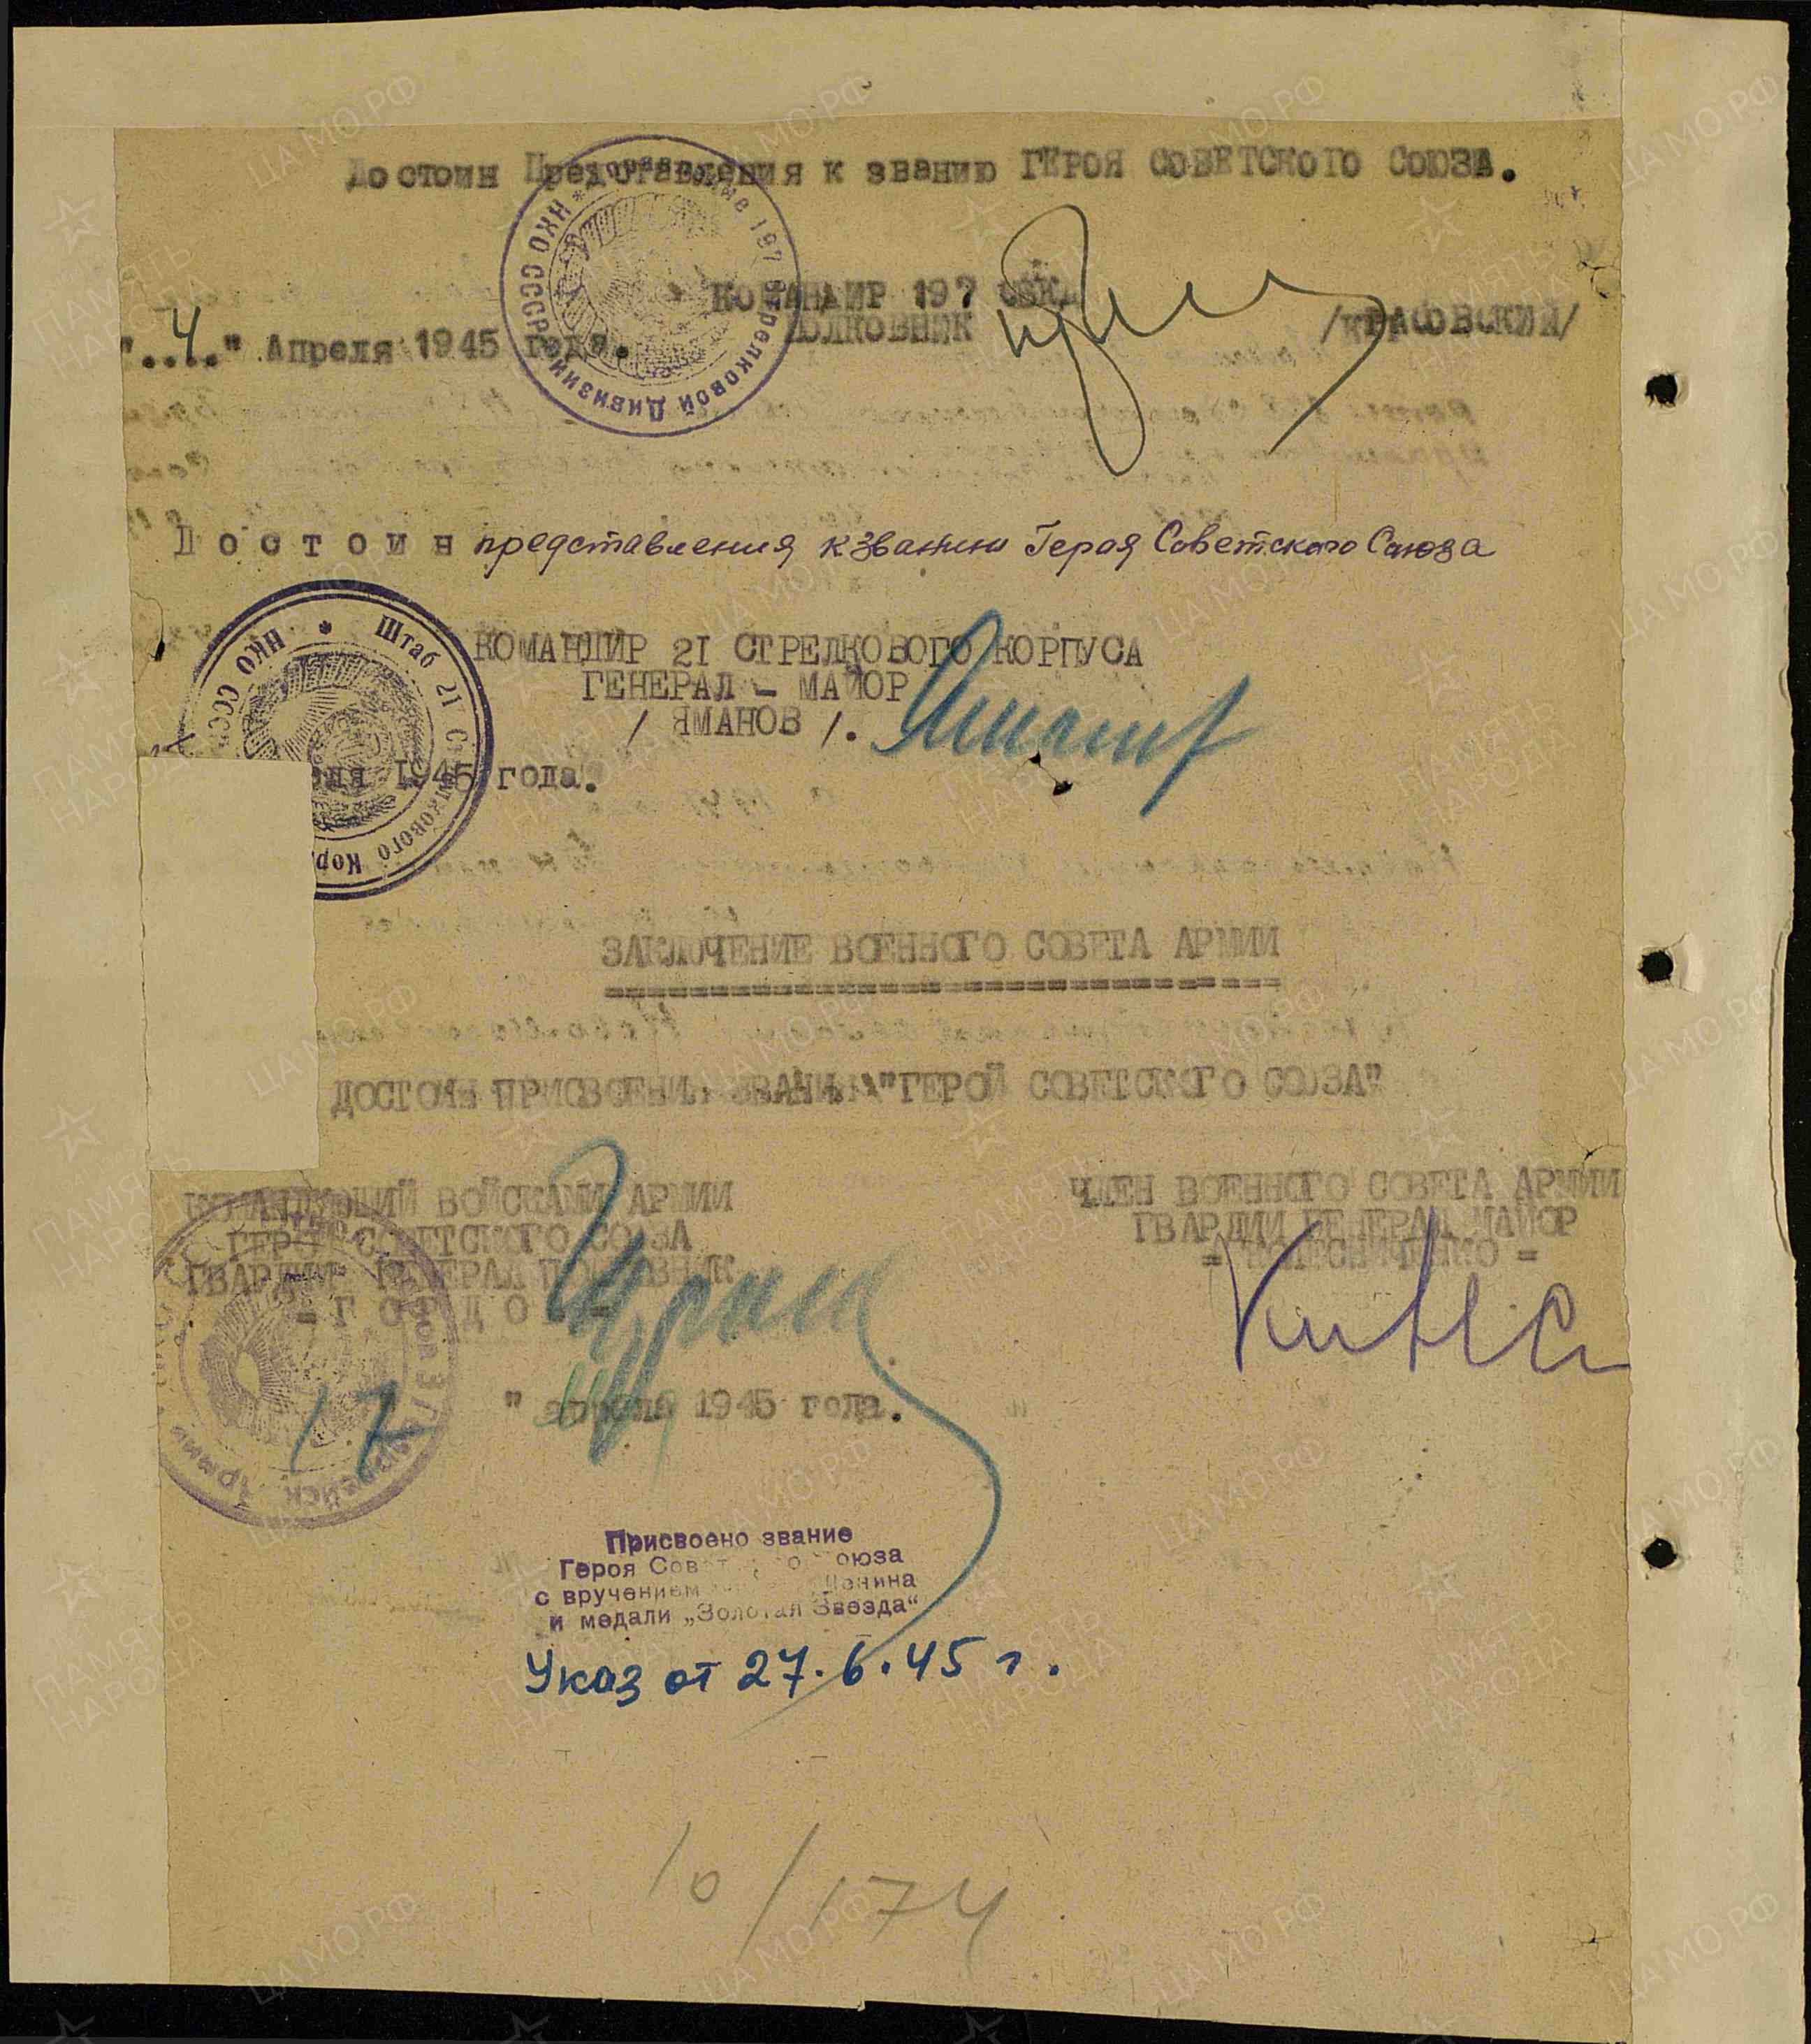 Достоин Представления к званию ГЕРОЯ СОВЕТСКОГО СОЮЗА.
КОМАНДИР 197
ПОЛКОВНИК
/КРАСОВСКИЙ/
"..4.." Апреля 1945 года.
НКО СССР * 197 Стрелковой Дивизии
Достоин представления к званию Героя Советского Союза
КОМАНДИР 21 СТРЕЛКОВОГО КОРПУСА
ГЕНЕРАЛ - МАЙОР
/ ЯМАНОВ /.
1945 года.
НКО СССР * Штаб 21
ЗАКЛЮЧЕНИЕ ВОЕННОГО СОВЕТА АРМИИ
ДОСТОИН ПРИСВОЕНИЯ ЗВАНИЯ "ГЕРОЙ СОВЕТСКОГО СОЮЗА"
КОМАНДУЮЩИЙ ВОЙСКАМИ АРМИИ
ГЕРОЙ СОВЕТСКОГО СОЮЗА
ГВАРДИИ ГЕНЕРАЛ ПОЛКОВНИК
= Г О Р Д О В =
ЧЛЕН ВОЕННОГО СОВЕТА АРМИИ
ГВАРДИИ ГЕНЕРАЛ МАЙОР
= КОЛЕСНИЧЕНКО =
17 " апреля 1945 года.
Присвоено звание
Героя Советского Союза
с вручением Ленина
и медали „Золотая Звезда“
Указ от 27.6.45 г.
10/174
ЦАМО.РФ
ПАМЯТЬ НАРОДА